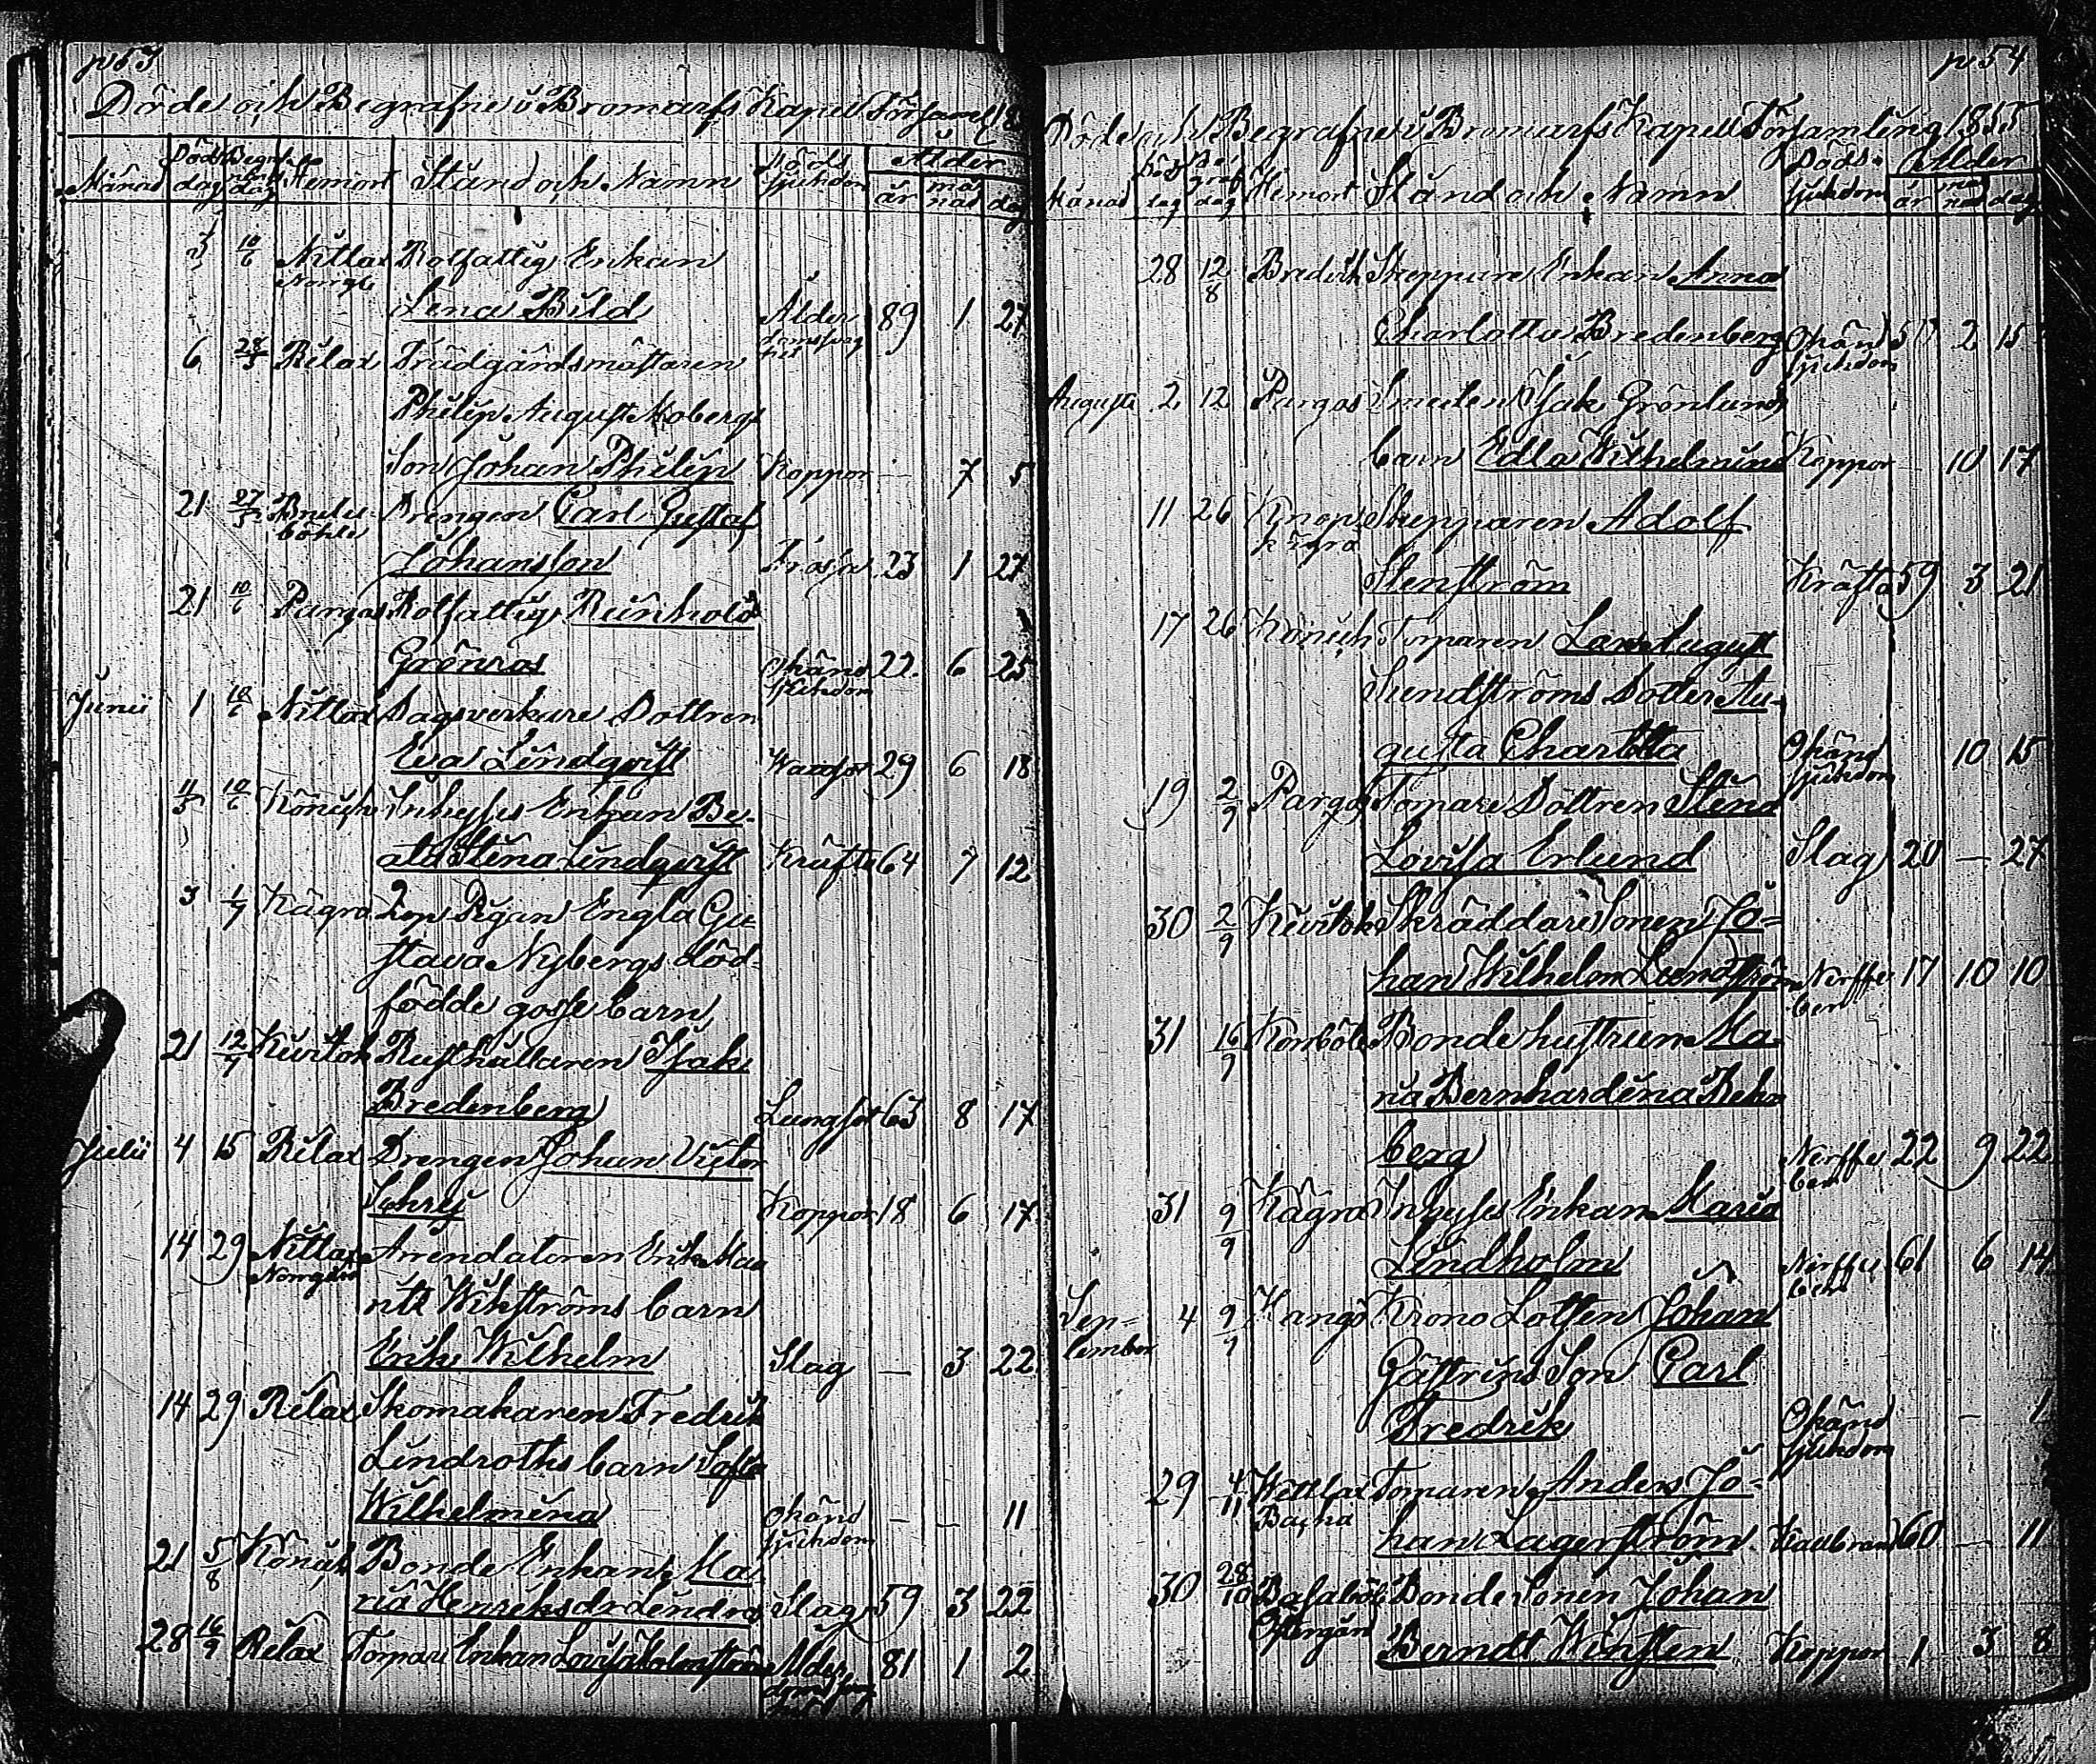 p 53
Döde och Begrafne i Bromarfs Kapell Församl
Månad Döds dag Begrafnings dag Hemort Stånd och Namn Döds sjukdom Ålder år månad dag
3 10/6 Nitlax Rotfattig Enkan
Norrg
Lena Bild Ålder 89 1 27
6 28/5 Rilax Trädgårdsmästaren
Philip August Mobergs
Son Johan Philip Koppor 7 5
21 27/5 Drengen Carl Gustaf
böhle
Johansson Frossa 23 1 27
21 10/6 Pargas Rotfattig Reinhold
Grönros Okänd sjukdom 22 6 25
Junii 1 10/6 Nitlax Dagsverkare Dottren
Eva Lindqvist 29 6 18
11/5 10/6 Inhyses Enkan Be-
ata Stina Lindqvist Kräfta 64 7 12
3 1/7 Kägra Lösa Pigan Engla Gu-
stava Nybergs död-
födde gosse barn
21 12/7 Kivitok Rusthållaren Isak
Bredenberg Lungsot 63 8 17
Julii 4 15 Rilax Drengen Johan Victor
Sohry Koppor 18 6 17
14 29 Nitlax Arrendatoren Erik Mau
Norrgård
ritz Wikströms barn
Erik Wilhelm Slag — 3 22
14 29 Rilax Skomakaren Fredrik
Lindroths barn Sofia
Wilhelmina Okänd sjukdom — — 11
21 5/8 Bonde Enkan Ma-
ria Henriksdr Lindros Slag 59 3 22
28 16/9 Rilax Torpare Enkan Lovisa Holmström Ålder 81 1 2
p 54
Döde och Begrafne i Bromarfs Kapell Församling 1855
Månad Döds dag Begraf dag Hemort Stånd och Namn Döds sjukdom Ålder år månad dag
28 12/8 Bredvik Skeppare Enkan Anna
Charlotta Bredenberg Okänd sjukdom 2 15
Augusti 2 12 Pargas Smeden Isak Grönlunds
barn Edla Wilhelmina Koppor 10 17
11 26 Skepparen Adolf
Stenström Kräfta 59 3 21
17 26 Torparen Lars August
Sundströms dotter Au-
gusta Charlotta Okänd sjukdom 10 15
19 2/9 Pargas Torpare Dottren Stina
Lovisa Erlund Slag 20 — 27
30 2/9 Kivitok Skräddare Sonen Jo-
han Wilhelm Lundström Nerffeber 17 10 10
31 16/9 Bonde hustrun Ma-
ria Bernhardina Rehn
berg Nerffeber 22 9 22
31 9/9 Kägra Inhyses Enkan Maria
Lindholm Nerffeber 61 6 14
September 4 9/9 Kangö Krono Lotsen Johan
Gästrins Son Carl
Fredrik Okänd sjukdom — 1
29 4/11 Torparen Anders Jo-
Backa
han Lagerström Kallbrand 60 — 11
30 28/10 Basaböle Bonde Sonen Johan
Östergård
Berndt Winsten Koppor 1 3 8